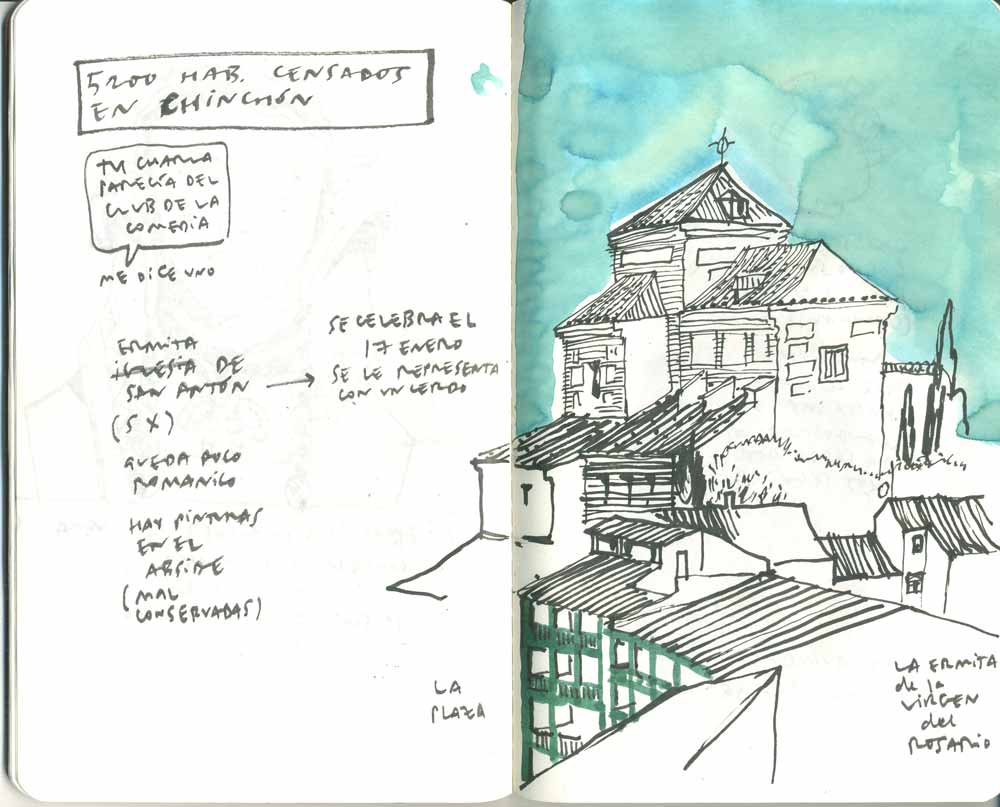 5200 HAB. CENSADOS
EN CHINCHÓN
TU CHARLA
PARECÍA DEL
CLUB DE LA
COMEDIA
ME DICE UNO
ERMITA
IGLESIA DE
SAN ANTÓN
(S X)
QUEDA POCO
ROMANICO
HAY PINTURAS
EN EL
ABSIDE
(MAL
CONSERVADAS)
SE CELEBRA EL
17 ENERO
SE LE REPRESENTA
CON UN CERDO
LA
PLAZA
LA ERMITA
de la
VIRGEN
del
ROSARIO